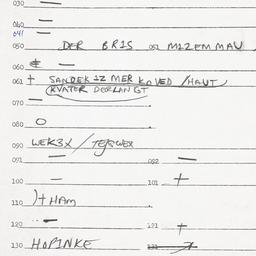 030 —
040 —
041
050 DER BRIS 051 MIZEMMAU
060 —
061 + SANDEK IZ MER KOVED / HAUT
KVATER DERLANGT
070 —
080 O
090 WEK3X /
091 — 092 —
100 — 101 +
110 )+HAM
120 — 121 +
130 HOPINKE 131